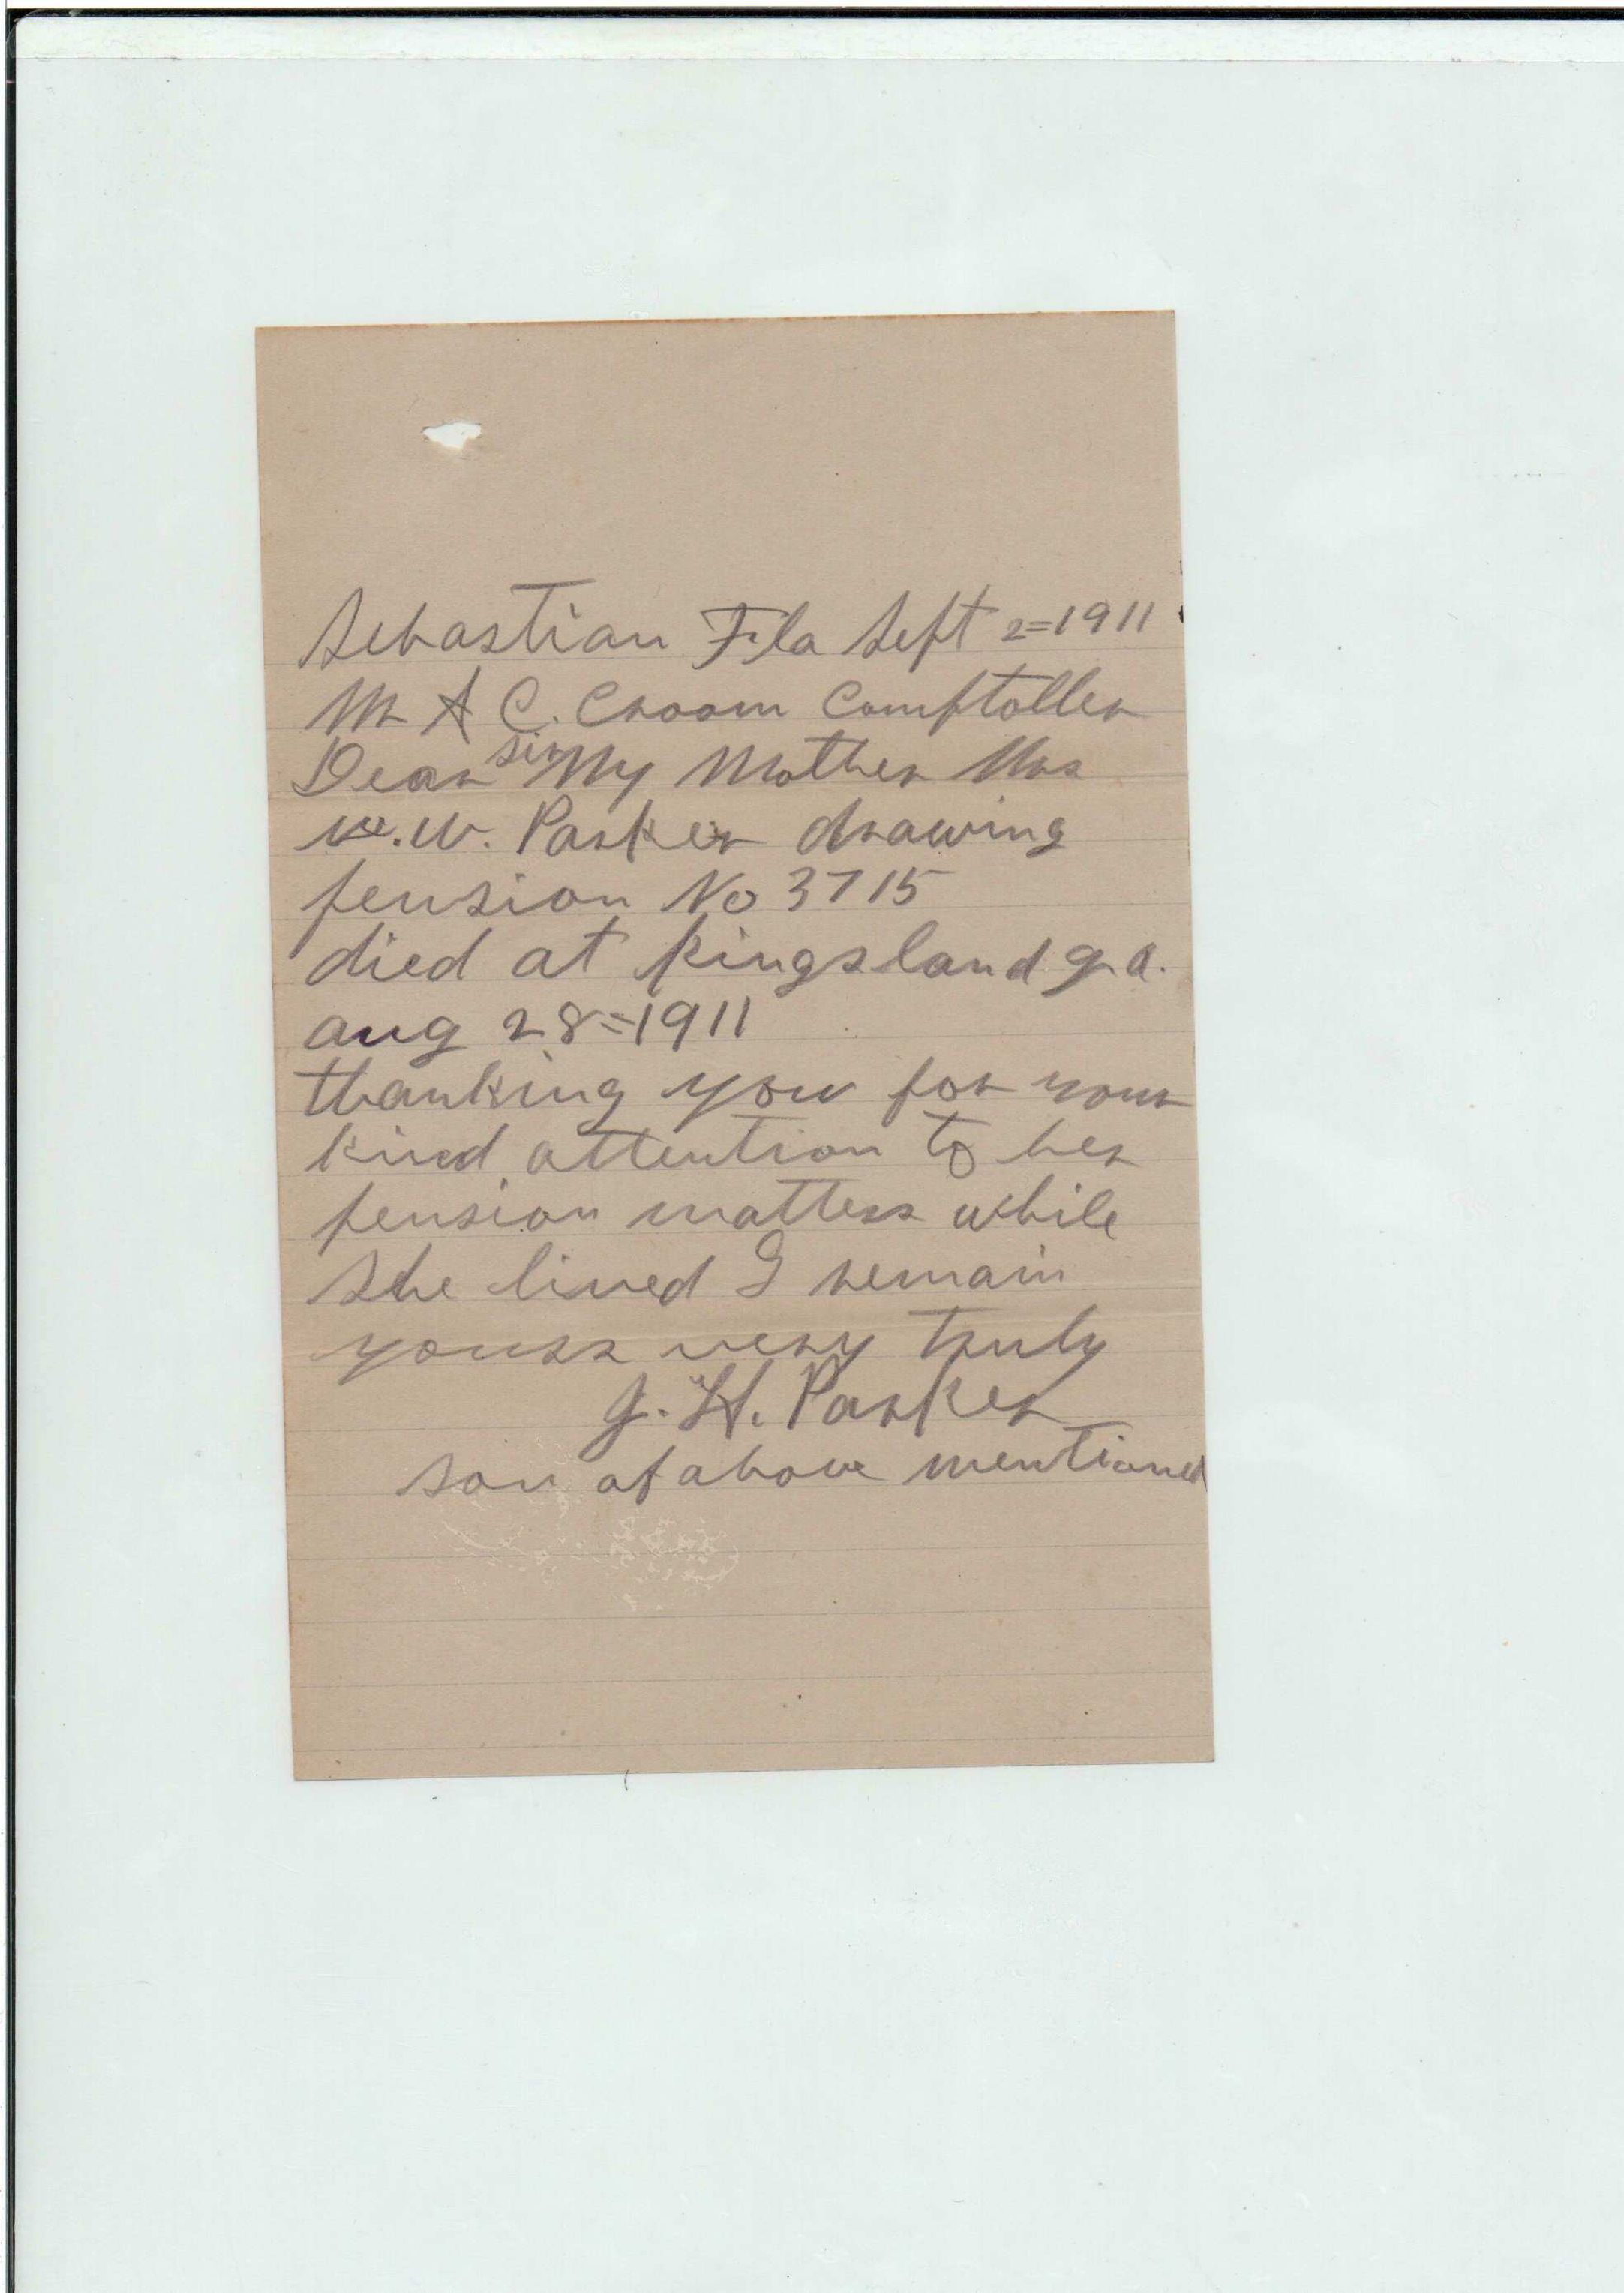 Sebastian Fla Sept 2=1911
Mr A C. Croom Comptoller
Dear sir My Mother Mrs
W. W. Parker drawing
pension No 3715
died at Kingsland ga.
aug 28=1911
thanking you for your
kind attention to her
pension matters while
She lived I remain
yours very truly
J. H. Parker
son of above mentioned